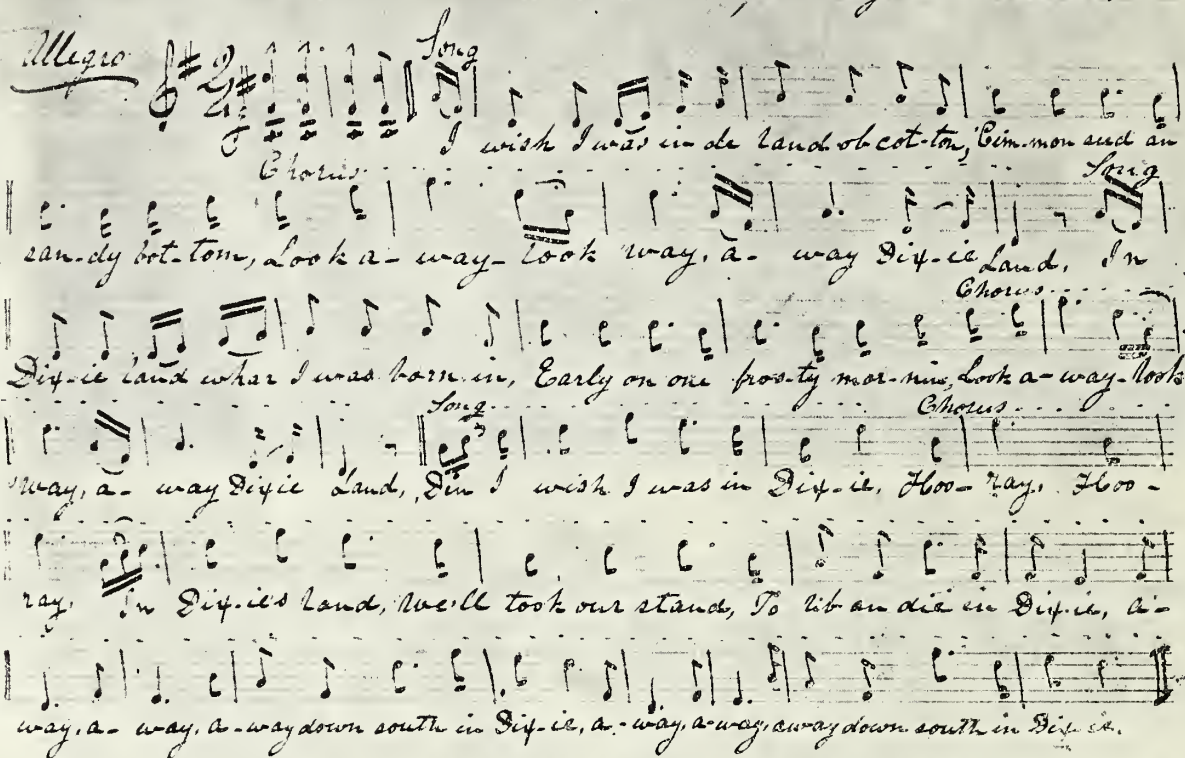 Allegro Song
I wish I was in de land ob cot-ton, Cim-mon seed an
Chorus Song
san-dy bot-tom, Look a-way-look 'way, a-way Dix-ie Land, In
Chorus
Dix-ie land whar I was born in, Early on one fros-ty mor-nin, Look a-way-look
Song Chorus
'way, a-way Dixie Land, Den I wish I was in Dix-ie, Hoo-ray, Hoo-
ray, In Dix-ie's land, we'll took our stand, To lib an die in Dix-ie, a-
way, a-way, a-way down south in Dix-ie, a-way, a-way, away down south in Dix-ie.